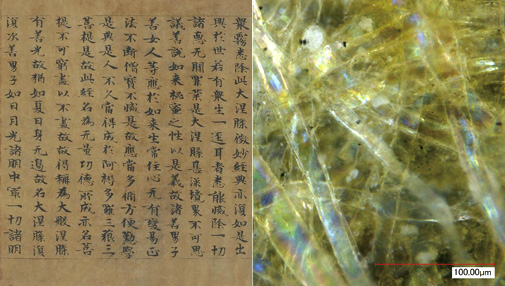 衆霧悉除此大涅槃微妙經典亦復如是出
興於世若有衆生一逕耳者悉能滅除一切
諸惡无間罪業是大涅槃甚深境界不可思
議善說如來秘密之性以是義故諸善男子
善女人等應於如來生常住心无有變易正
法不斷僧寶不滅是故應當多脩方便勤學
是典是人不久當得成於阿耨多羅三藐三
菩提是故此經名為无量功德所成亦名菩
提不可窮盡以不盡故故得稱為大般涅槃
有善光故猶如夏日身无邊故名大涅槃
復次善男子如日月光諸明中最一切諸明
100.00μm